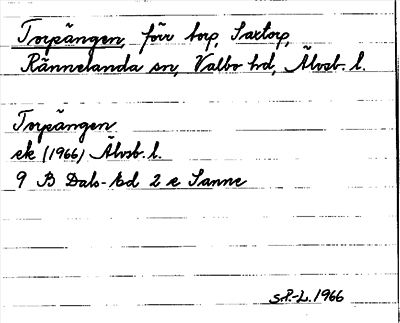 Torpängen, förr torp, Saxtorp,
Rännelanda sn, Valbo hd, Älvsb. l.
Torpängen
ek (1966) Älvsb. l.
9 B Dals-Ed 2 e Sanne
S.P.-L. 1966